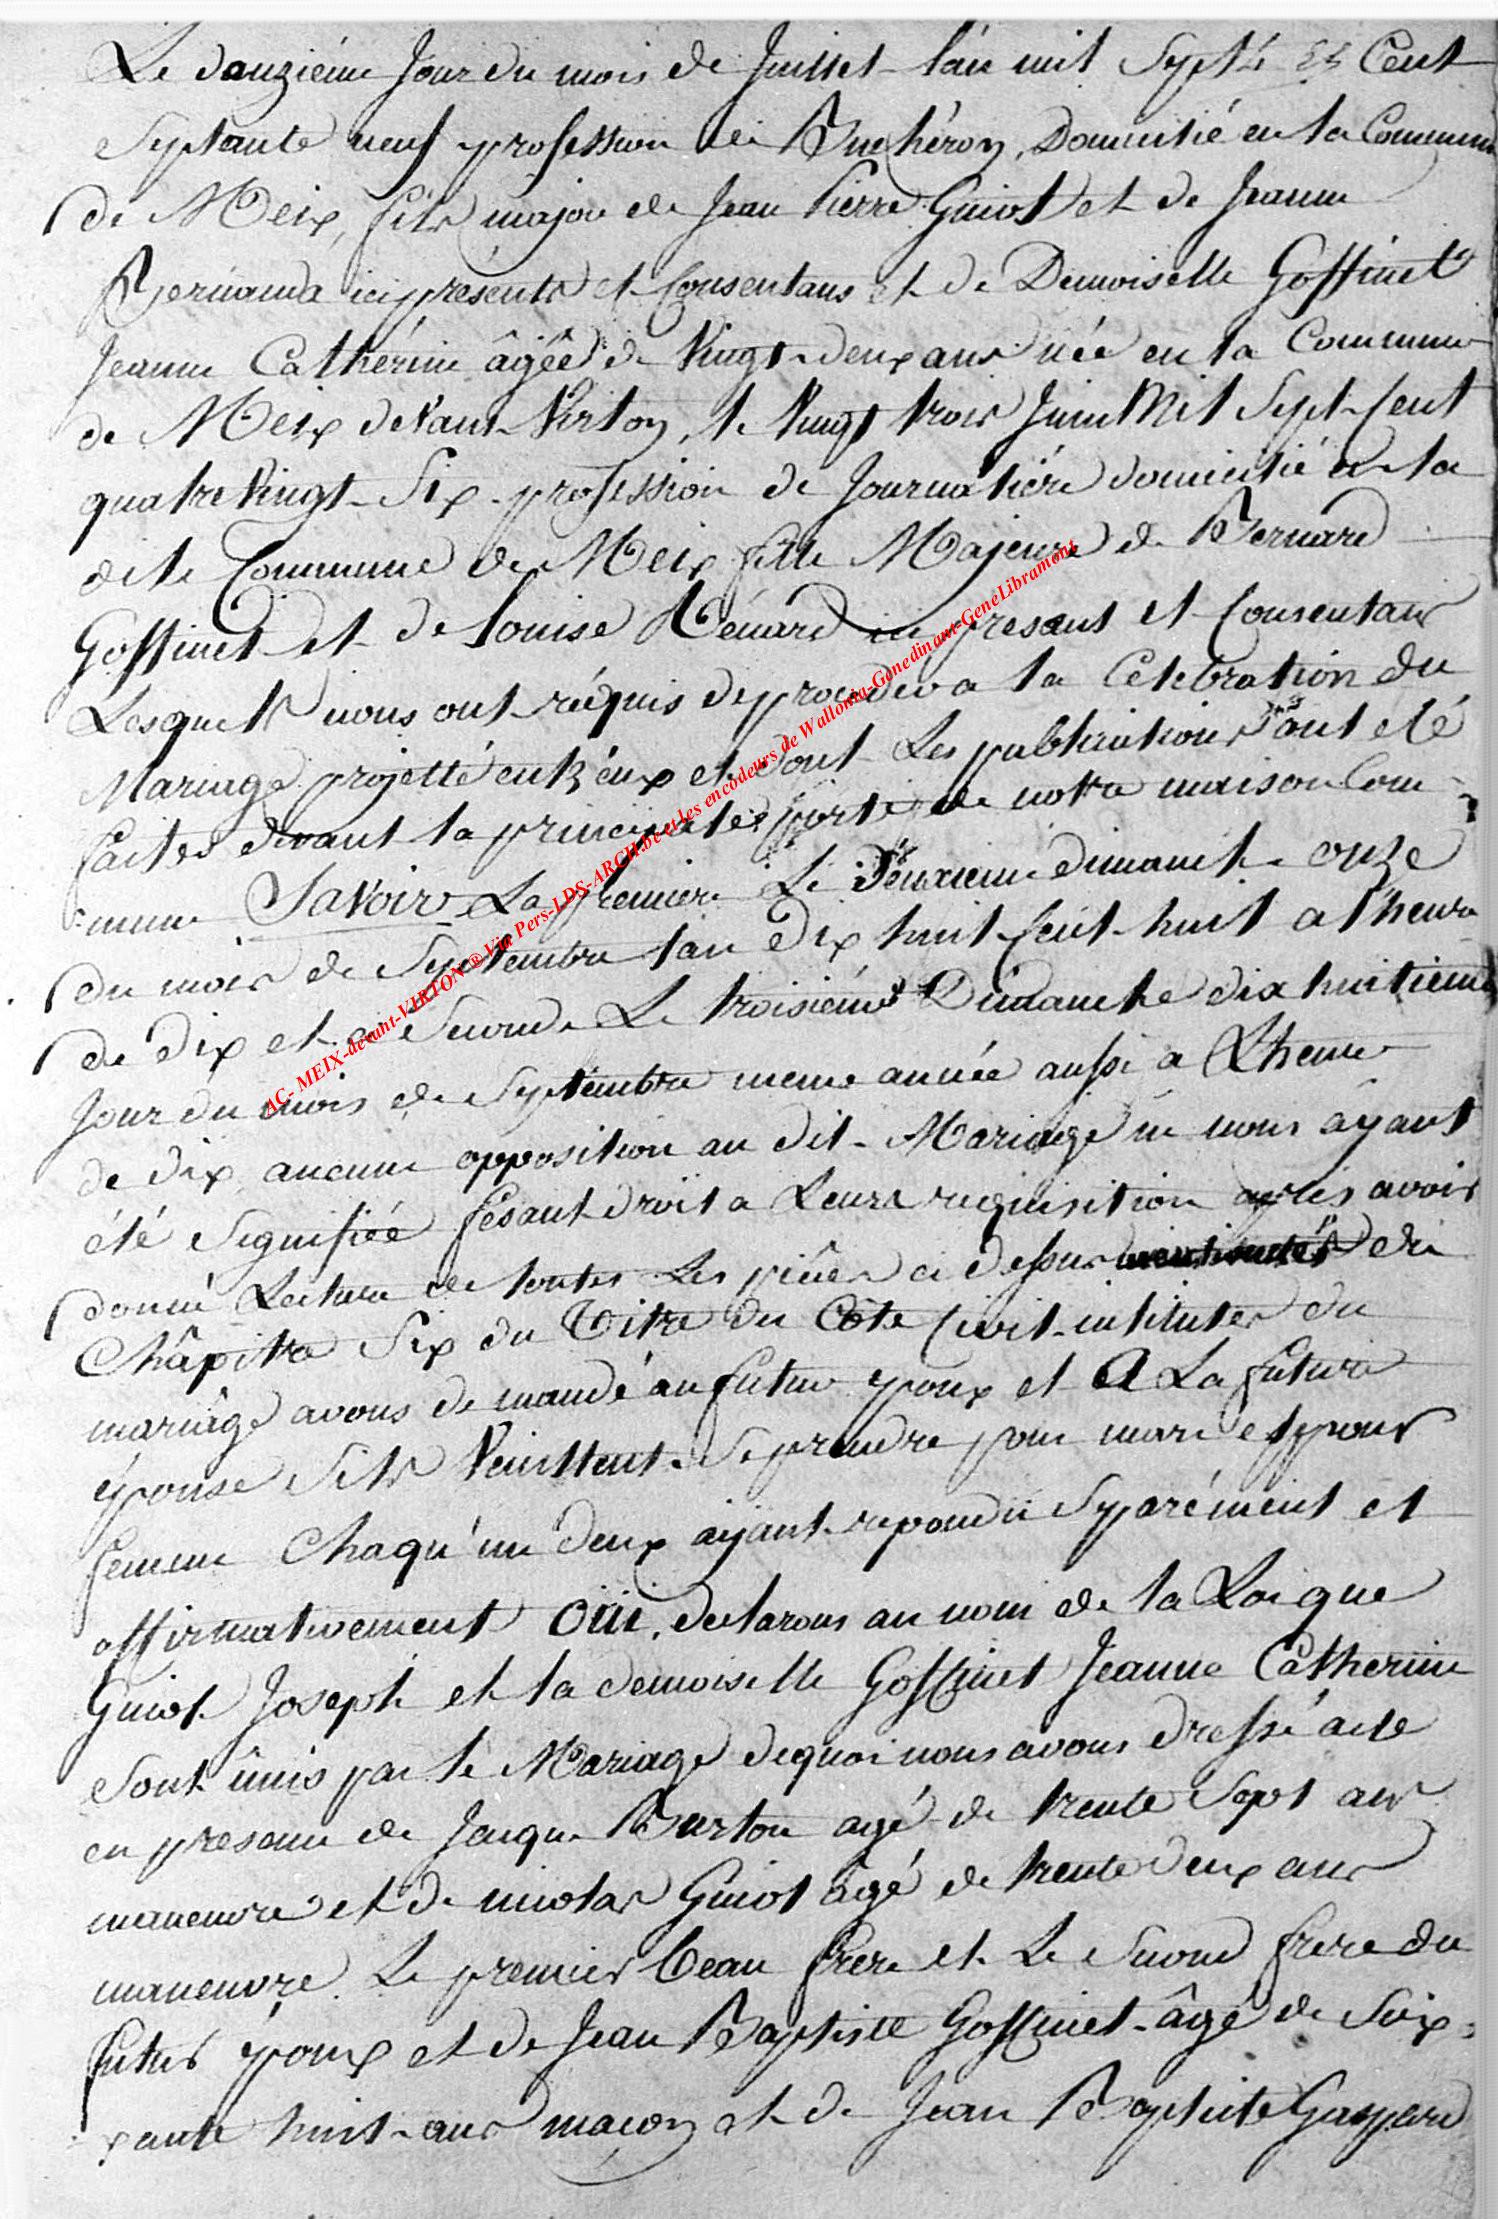 Le douzième Jour du mois de Juillet l'an mil Sept Cent
Septante neuf profession de Bucheron, Domicilié en la Commune
de Meix, fils majour de Jean Pierre Guiot et de Jeanne
ici présents et Consentans et de Demoiselle Goffinet
Jeanne Cathérine âgée de Vingt-deux ans née en la Commune
de Meix devant Virton, le Vingt trois Juin Mil Sept Cent
quatre Vingt Six profession de Journalière domicilié en la
dite Commune de Meix fille Majeure de Bernard
Goffinet et de Louise Rénard ici presant et Consentans
Lesquels nous ont réquis de proceder a la Célebration du
Mariage projetté entr'eux et dont Les publications ont eté
faites devant la principale porte de notre maison Com-
=mune Savoir La premiere Le Deuxieme dimanche onze
du mois de Septembre l'an Dix huit Cent huit a l'heure
de dix et la Seconde Le troisiéme Dimanche dix huitieme
Jour du mois de Septembre meme année aussi a L'heure
de dix, aucune opposition au dit Mariage ne nous ayant
été Signifiée fesant droit a Leurs requisition apres avoir
donné Lecture de toutes Les pièces ci dessus mentionnées du
Châpitre Six du Titre du Côte Civil intitules du
mariâge avons demandé au futur epoux et A La future
épouse S'ils Veuillent Se prendre pour mari et pour
femme Chaqu'un deux aÿant repondu Séparément et
affirmativement Oüi, declarons au nom de la Loi que
Guiot Joseph et la demoiselle Goffinet Jeanne Catherine
Sont ûnis par le Mariage de quoi nous avons dressé acte
en presence de Jacque Burton agé de trente Sept ans
maneuvre et de nicolas Guiot âgé de trente deux ans
maneuvre Le premier beau frere et Le Second frere du
futur époux et de Jean Baptiste Goffinet âgé de Soix=
=xante huit ans maçon et de Jean Baptiste Gaspard
AC- MEIX-devant-VIRTON ® Via Pers-LDS-ARCH.be et les encodeurs de Wallonia-Genedinant-GeneLibramont